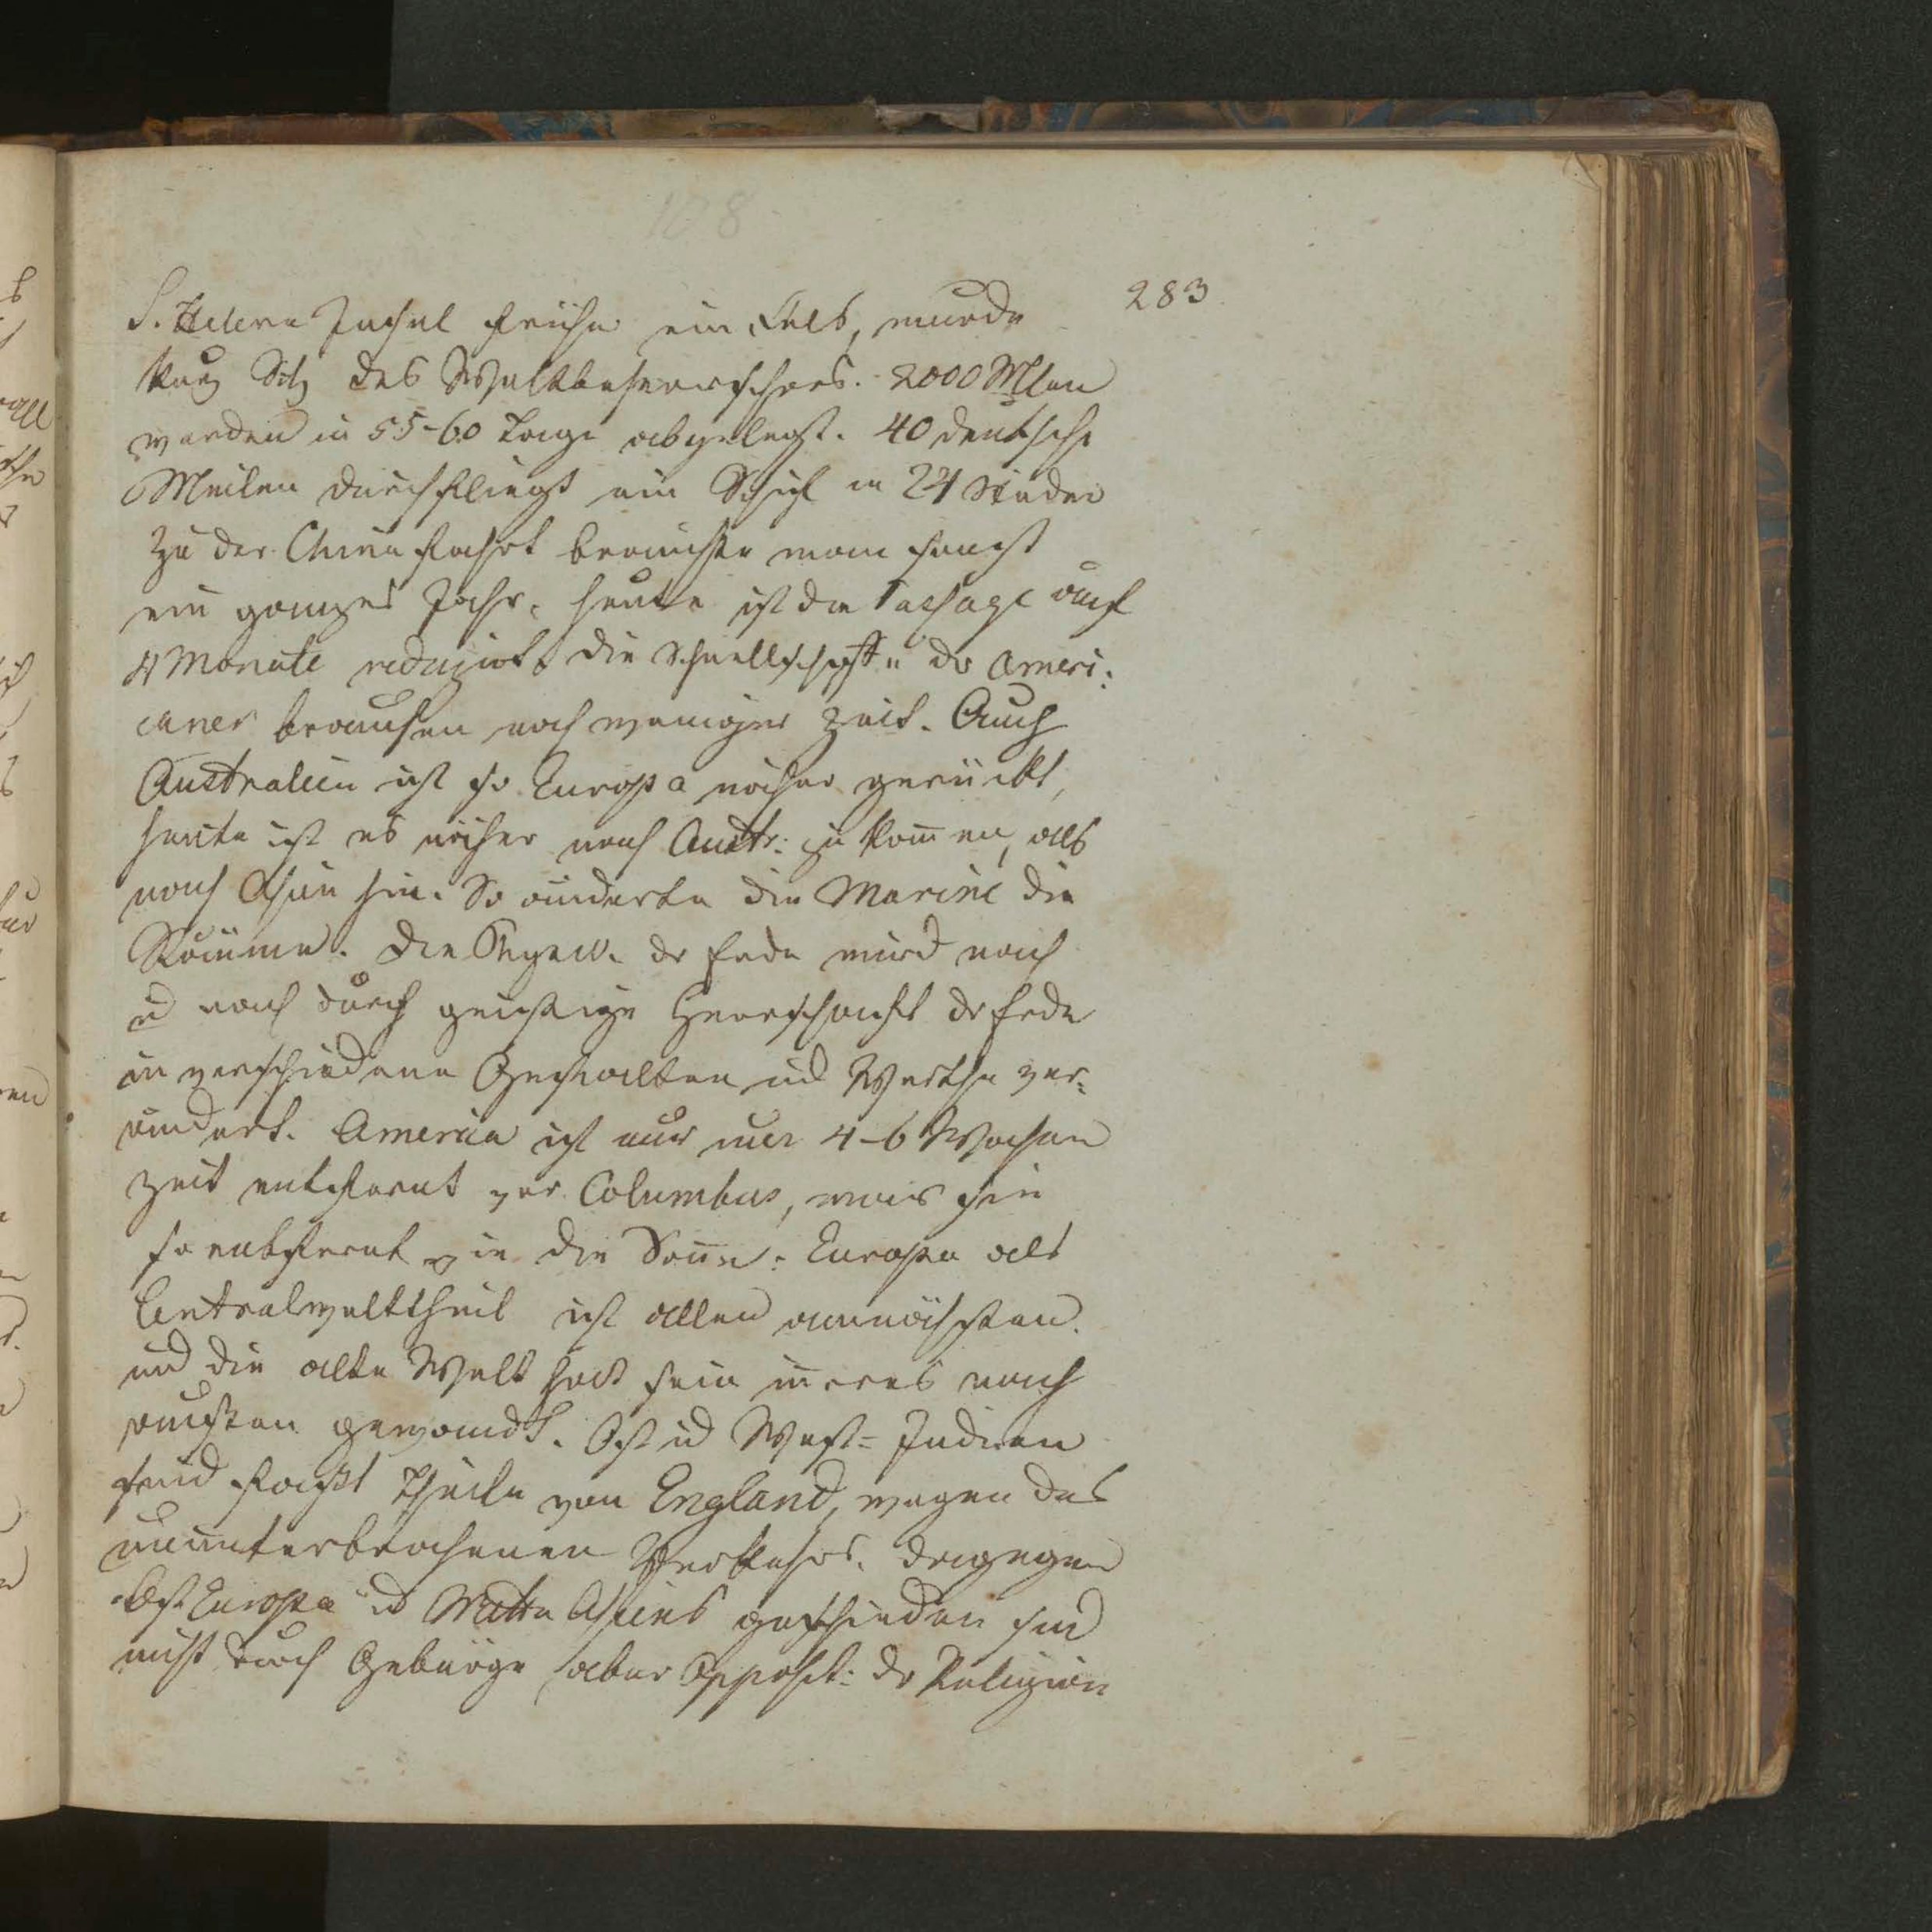 108
283
S. Helena Insel früher ein Fels, wurde
kurz Sitz des Weltbeherrschers. 2000 Mlen
werden in 55-60 Tage abgelegt. 40 deutsche
Meilen durchfliegt ein Schif in 24 Stunden
Zu der China fahrt brauchte man sonst
ein ganzes Jahr, heute ist die Passage auf
4 Monate reduzirt. die Schnellschiffe der Ameri:
caner brauchen noch weniger Zeit. Auch
Australien ist so Europa näher gerückt,
heute ist es näher nach Austr: zu kom̄en, als
nach Asien hin. So änderte die Marine die
Räume. Die der Erde wird nach
ud nach durch geistige Herrschaft der Erde
in verschiedene Gestalten ud Werthe ver:
ändert. America ist nur nur 4-6 Wochen
Zeit entfernt vor Columbus, war sie
so entfernt wie die Son̄e. Europa als
Centralwelttheil ist allen am nächsten.
und die alte Welt hat sein in̄eres nach
außen gewandt. Ost ud West= Indien
sind fast Theile von England, wegen des
ununterbrochenen Verkehrs. dagegen
Ost Europa ud Mitte Asiens geschieden sind
nicht durch Gebürge aber Opposit: der Religion